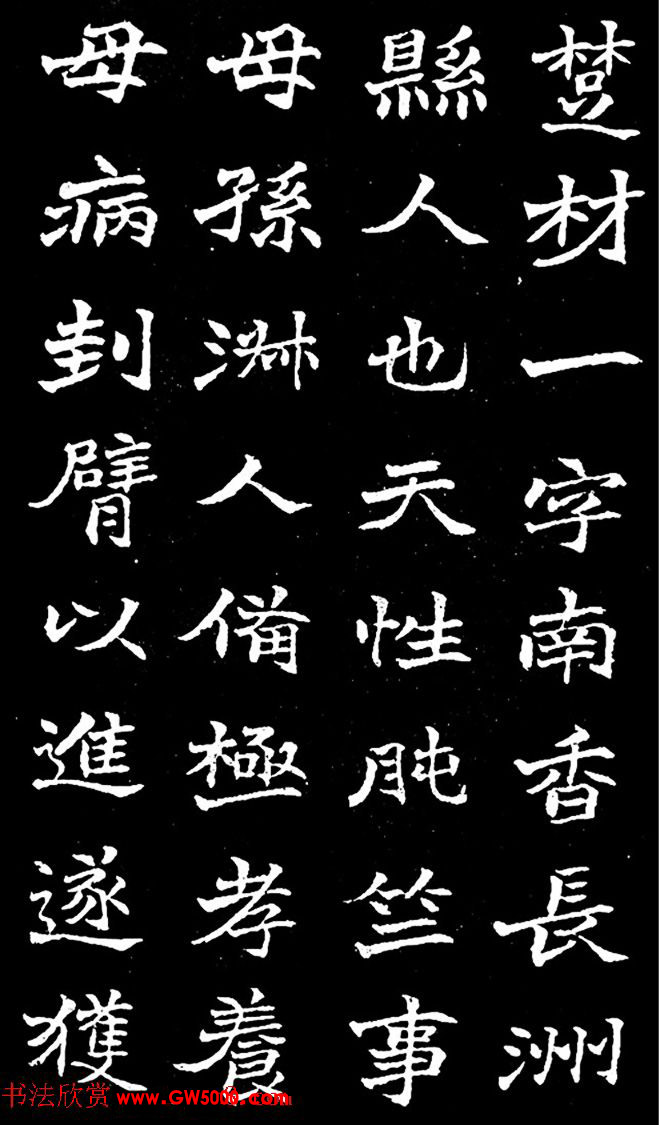 楚材一字南香長洲
縣人也天性肫竺事
母孫淑人備極孝養
母病刲臂以進遂獲
书法欣赏 www.GW5000.com